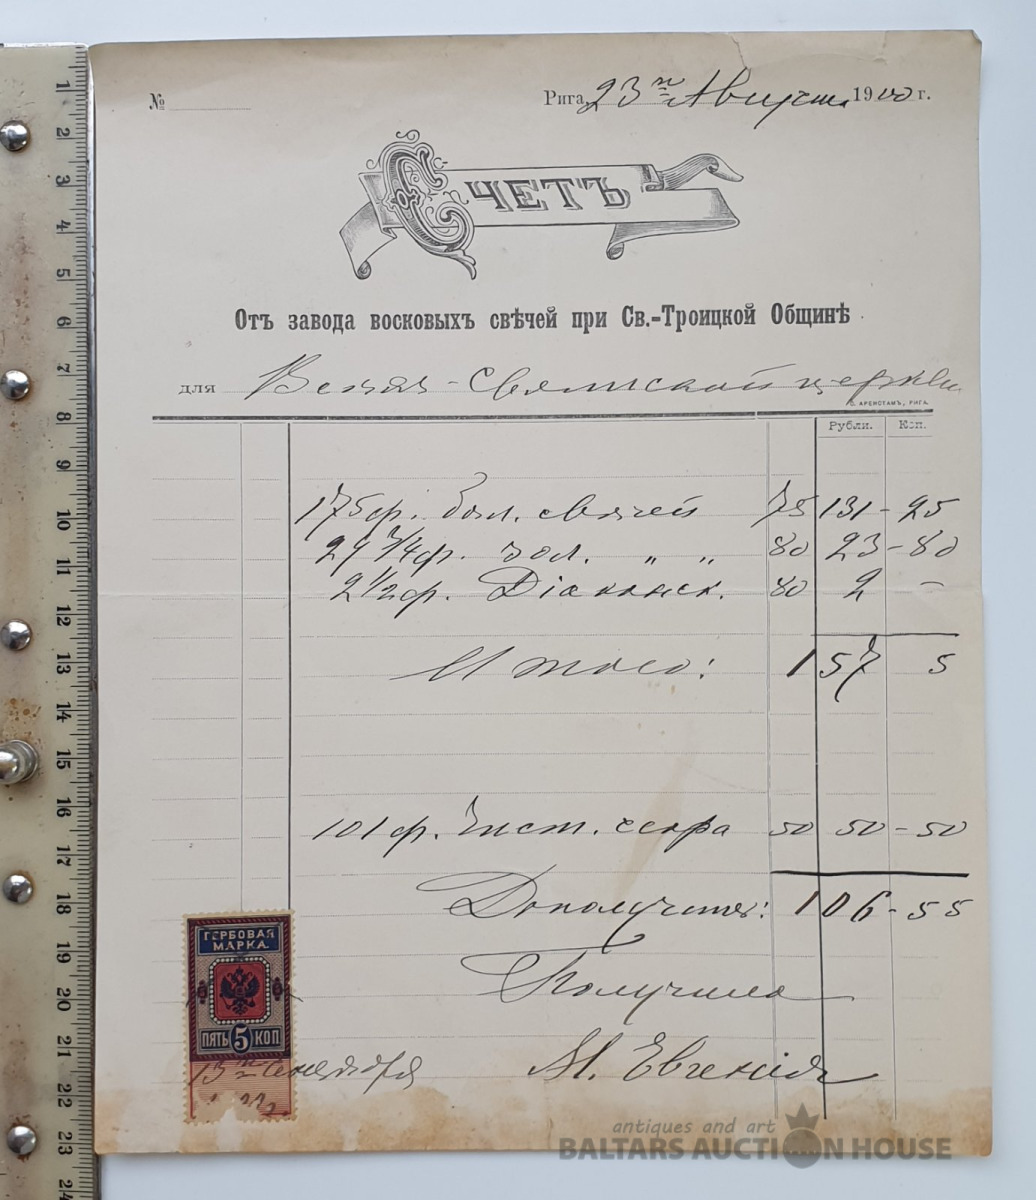 №
Рига, 23го Августа 1900 г.
СЧЕТЪ
Отъ завода восковыхъ свѣчей при Св.-Троицкой Общинѣ
для церкви
С. АРЕНСТАМЪ, РИГА.
Рубли. Коп.
175 ф. бѣл. свѣчей 75 131 - 25
29 3/4 ф. зол. " " 80 23 - 80
2 1/2 ф. Діаконск. 80 2 -
Итого: 157 5
101 ф. чист. 50 50 - 50
Дополучить: 106 - 55
Получила
М. Евгенія
ГЕРБОВАЯ
МАРКА.
ПЯТЬ 5 КОП
15го Сентября
antiques and art
BALTARS AUCTION HOUSE
1
2
3
4
5
6
7
8
9
10
11
12
13
14
15
16
17
18
19
20
21
22
23
24